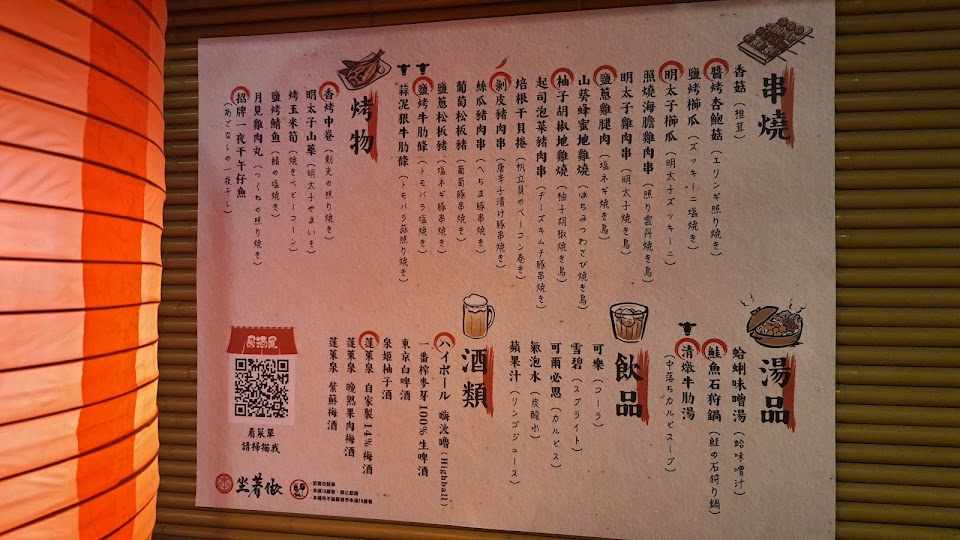 串燒
香菇（椎茸）
醬烤杏鮑菇（エリンギ照り焼き）
鹽烤櫛瓜（ズッキーニ塩焼き）
明太子櫛瓜（明太子ズッキーニ）
照燒海膽雞肉串（照り雲丹焼き鳥）
明太子雞肉串（明太子焼き鳥）
鹽蔥雞腿肉（塩ネギ焼き鳥）
山葵蜂蜜地雞燒（はちみつわさび焼き鳥）
柚子胡椒地雞燒（柚子胡椒焼き鳥）
起司泡菜豬肉串（チーズキムチ豚串焼き）
培根干貝捲（帆立貝のベーコン巻き）
剝皮豬肉串（唐辛子漬け豚串焼き）
絲瓜豬肉串（へちま豚串焼き）
葡萄松板豬（葡萄豚串焼き）
鹽蔥松板豬（塩ネギ豚串焼き）
鹽烤牛肋條（トモバラ塩焼き）
蒜泥狠牛肋條（トモバラ蒜照り焼き）
烤物
香烤中卷（剣先の照り焼き）
明太子山藥（明太子やまいも）
烤玉米筍（焼きベビーコーン）
鹽烤鯖魚（鯖の塩焼き）
月見雞肉丸（つくねの照り焼き）
招牌一夜干午仔魚
（あごなしの一夜干し）
湯品
蛤蜊味噌湯（蛤味噌汁）
鮭魚石狩鍋（鮭の石狩り鍋）
清燉牛肋湯
（中落ちカルビスープ）
飲品
可樂（コーラ）
雪碧（スプライト）
可爾必思（カルピス）
氣泡水（炭酸水）
蘋果汁（リンゴジュース）
酒類
ハイボール 嗨波嚕（Highball）
一番榨麥芽100%生啤酒
東京白啤酒
泉姬柚子酒
蓬萊泉 自家製14%梅酒
蓬萊泉 晚熟果肉梅酒
蓬萊泉 紫蘇梅酒
居酒屋
看菜單
請掃描我
坐著做